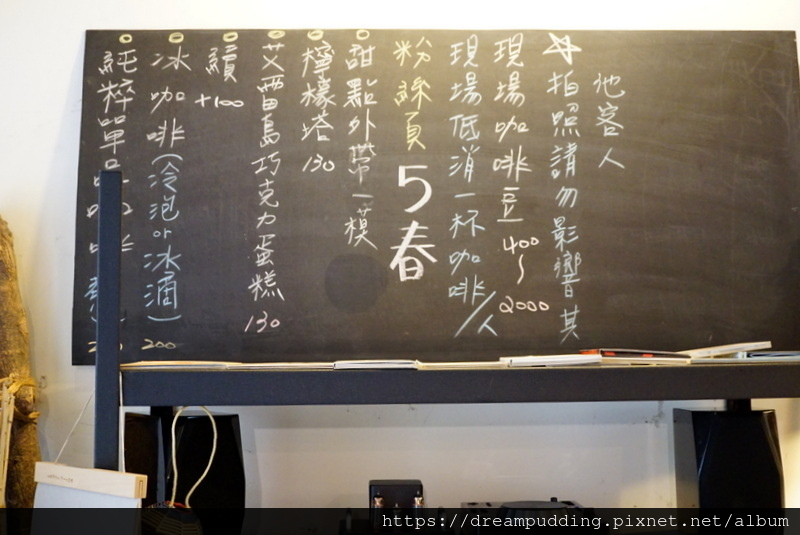 純粹單
冰咖啡(冷泡or冰滴) 200
續 +100
艾雷島巧克力蛋糕 130
檸檬塔 130
甜點外帶一模
粉絲頁 5春
現場低消一杯咖啡/人
現場咖啡豆 400~2000
☆拍照請勿影響其
他客人
https://dreampudding.pixnet.net/album